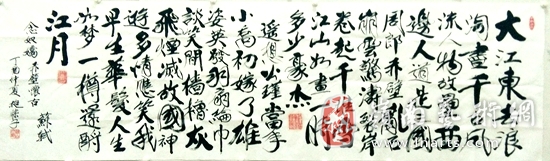 大江東去浪
淘盡千古風
流人物故壘西
邊人道是三國
周郎赤壁亂石
崩雲驚濤裂岸
卷起千堆雪
江山如畫一時
多少豪杰
遥想公瑾當年
小喬初嫁了雄
姿英發羽扇綸巾
談笑間檣櫓灰
飛煙滅故國神
遊多情應笑我
早生華髮人生
如夢一樽還酹
江月
念奴嬌赤壁懷古 蘇軾
丁酉仲夏